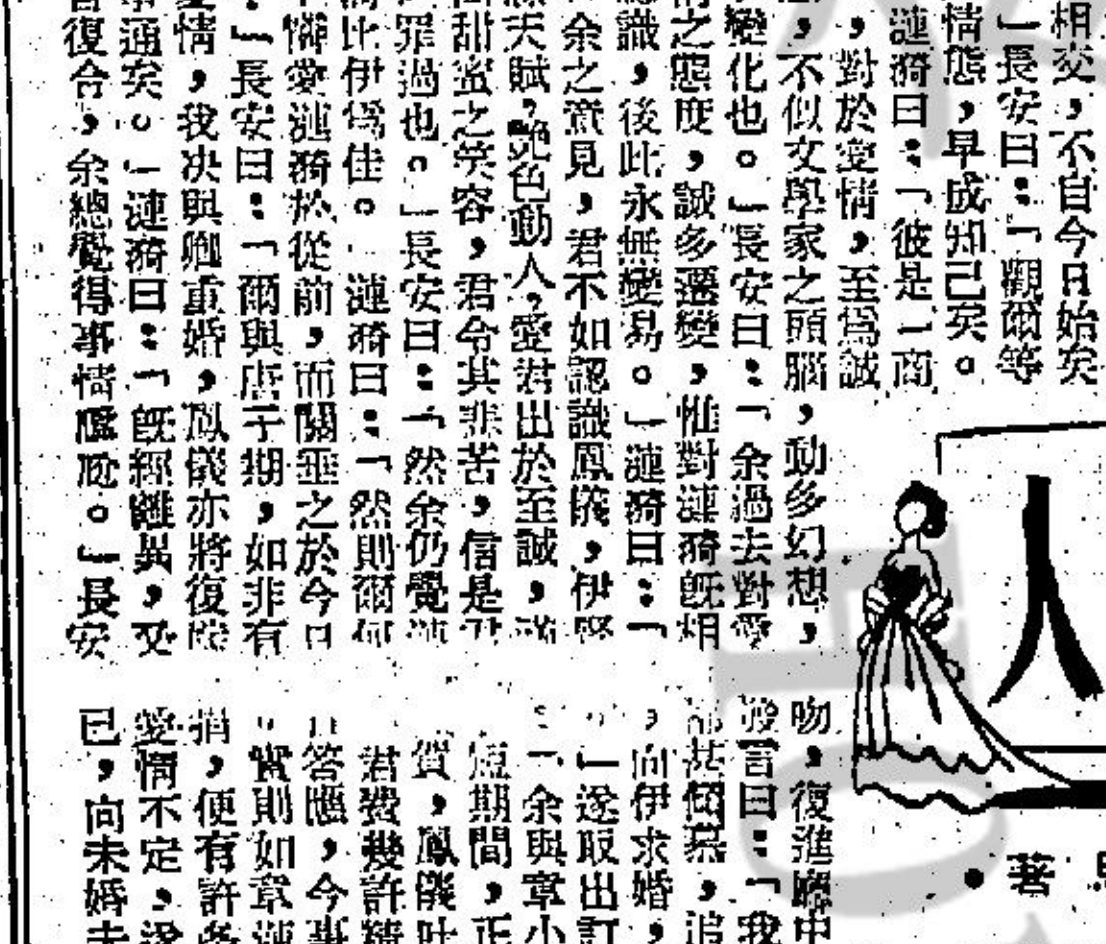 相交，不自今日始矣
」長安曰：「觀爾等
情態，早成知己矣。
漣漪曰：「彼是一商
，對於愛情，至為誠
，不似文學家之頭腦，動多幻想，
變化也。」長安曰：「余過去對愛
情之態度，誠多遷變，惟對漣漪旣相
認識，後此永無變易。」漣漪曰：「
余之意見，君不如認識鳳儀，伊
天賦，艷色動人，愛君出於至誠，
甜蜜之笑容，君令其悲苦，信是君
罪過也。」長安曰：「然余仍覺漣
比伊爲佳。」漣漪曰：「然則爾何
憐愛漣漪於從前，而關垂之於今日
」長安曰：「爾與唐子期，如非有
愛情，我决與彼重婚，鳳儀亦將復
事通矣。」漣漪曰：「旣經離異，又
復合，余總覺得事情尷尬。」長安
人
著
吻，復進廳中
曰：「我
其傾慕，追
，向伊求婚，
」遂取出訂
「余與章小
期間，正
賀，鳳儀
君費幾許精
答應，今事
實則如章漣
捐，便有許多
愛情不定，遂
已，向未婚夫